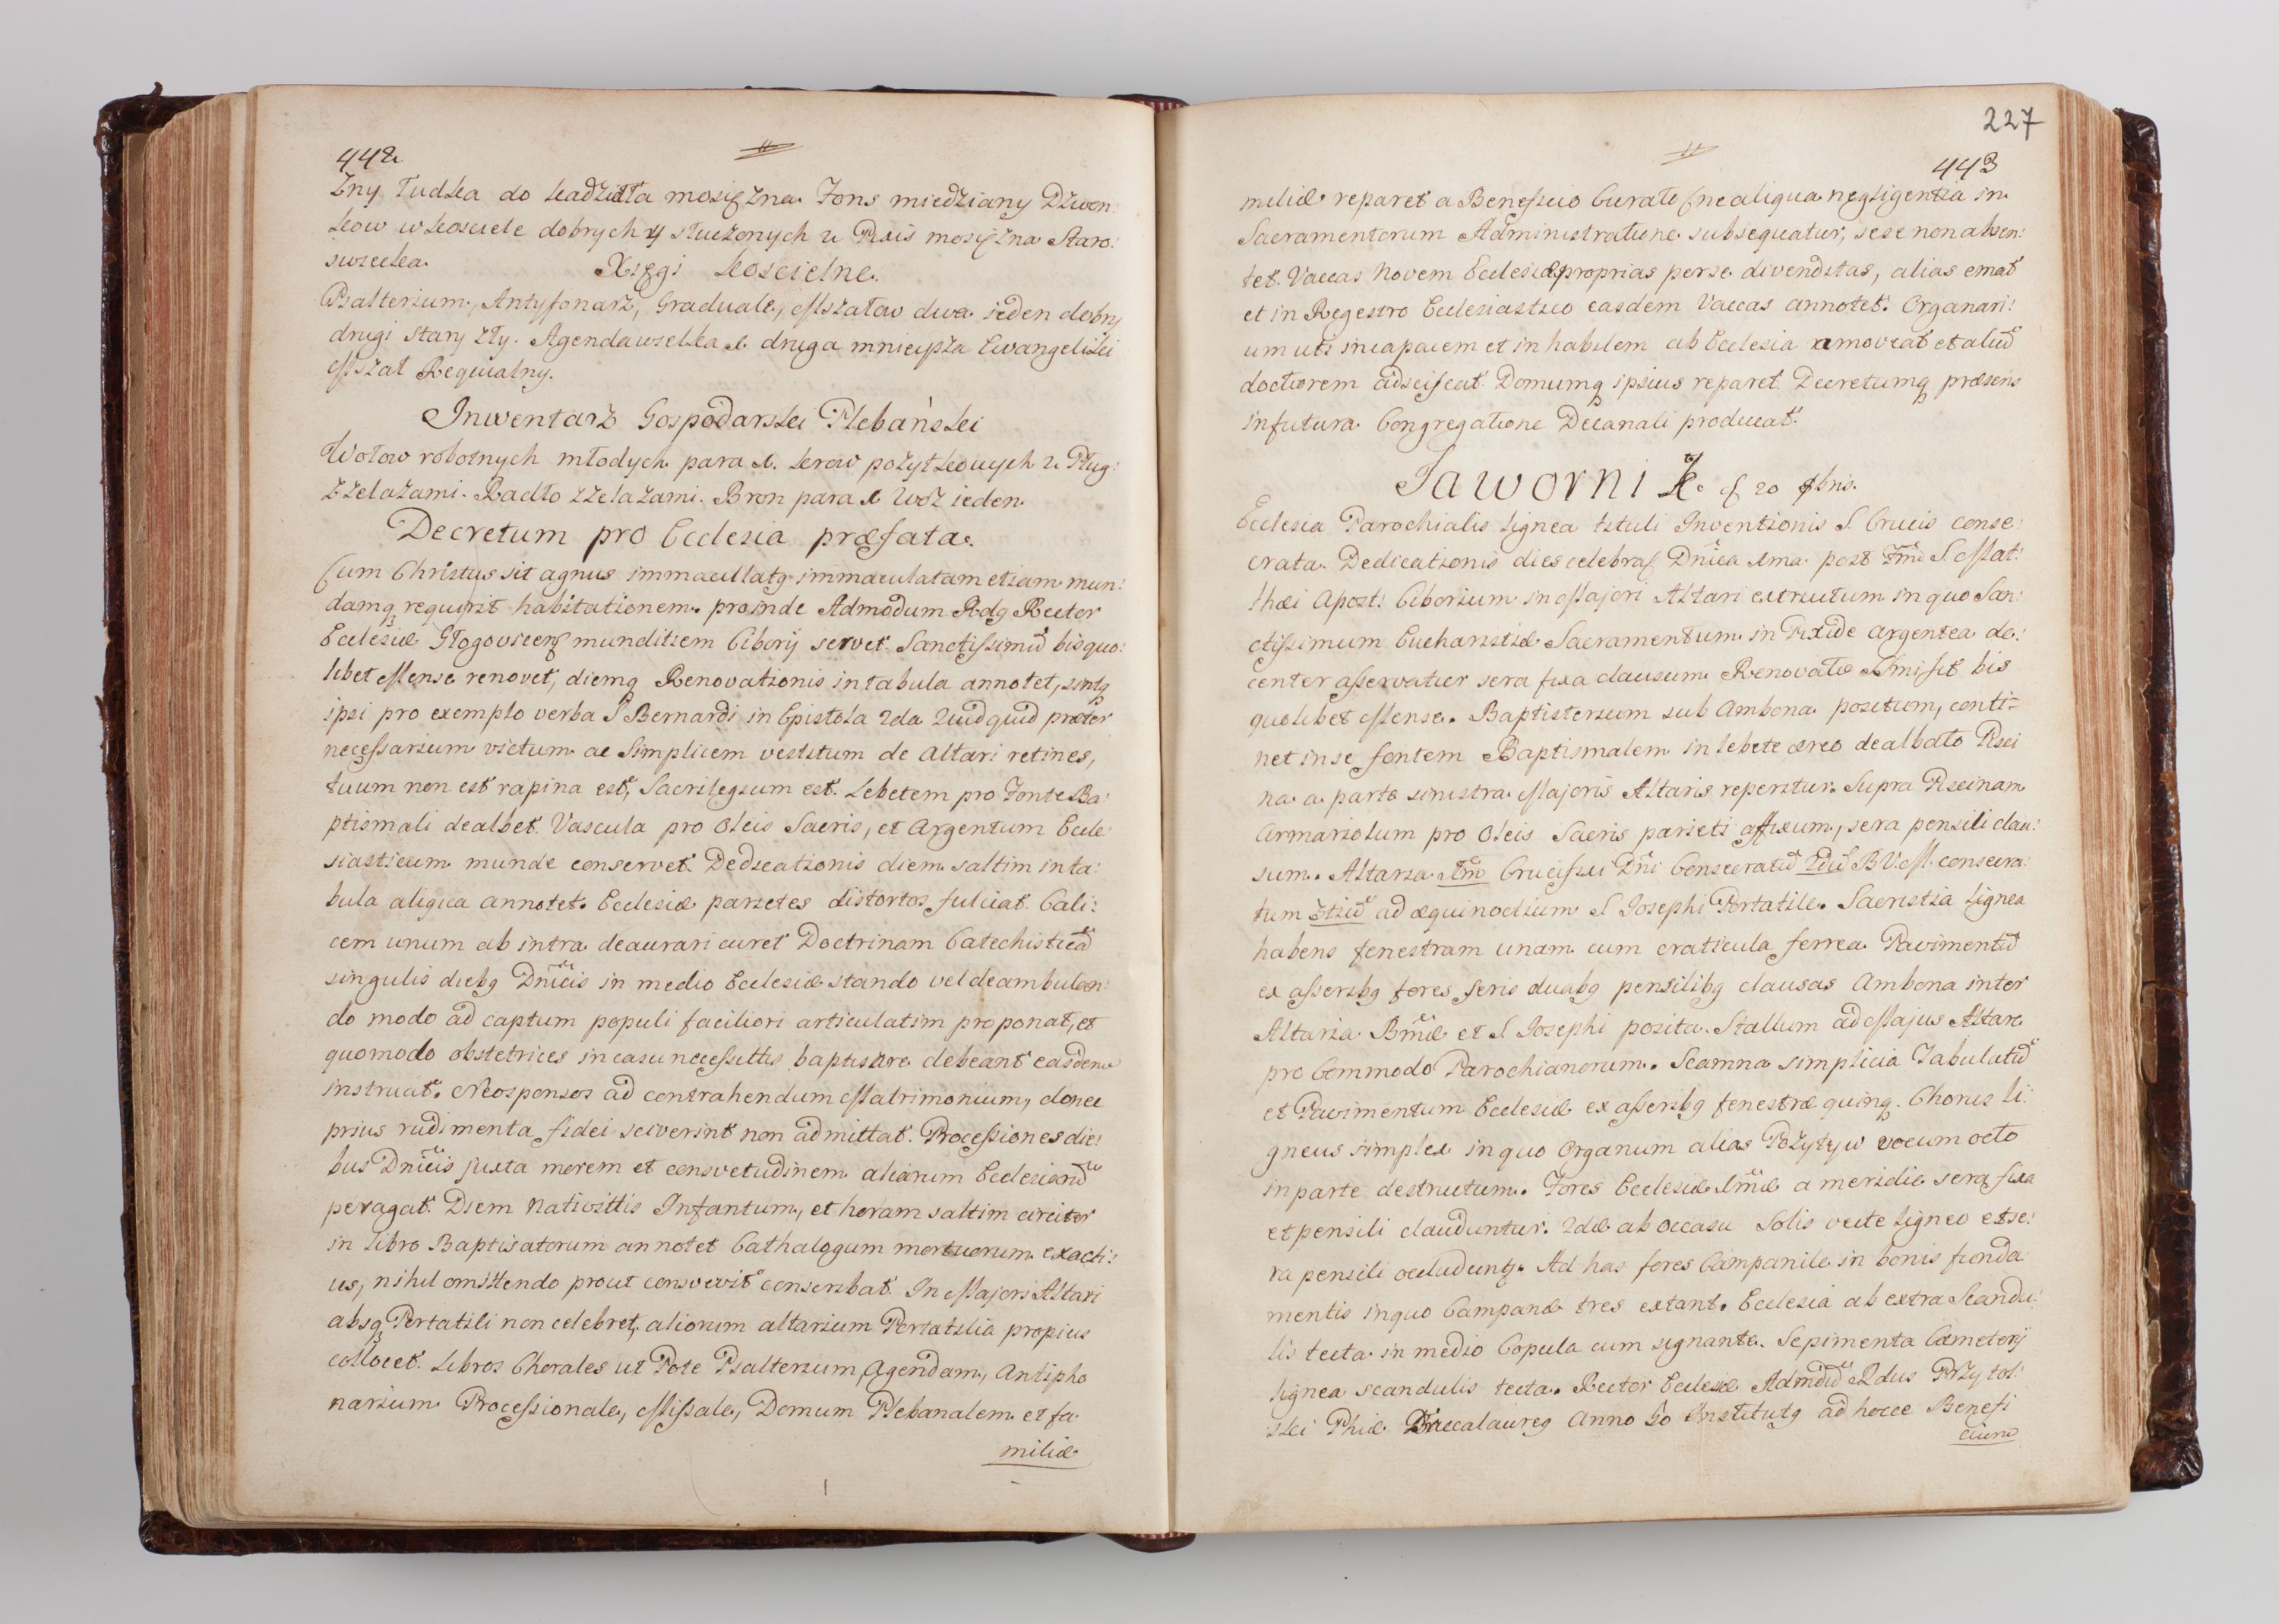 442
żny Łudka do kadzidła mosiężna. Fons miedziany Dzwon:
kow w kosciele dobrych 4 stłuczonych 2 Puxis mosiężna Staro:
swiecka.
Xsięgi koscielne.
Psalterium, Antyfonarz, Graduale, Mszałow dwa ieden dobry
drugi stary zły. Agenda wielka 1. druga mnieysza Ewangeliczki
Mszał Requialny.
Inwentarz Gospodarski Plebański
Wołow robotnych młodych para 1. krow pożytkowych 2. Pług:
z żelazami. Radło z żelazami. Bron para 1 Woz ieden.
Decretum pro Ecclesia præfata.
Cum Christus sit agnus immacullatq immaculatam etiam mun:
damq requirit habitationem. proinde Admodum Rdq Rector
Ecclesiæ Głogoviceñ munditiem Ciborij servet. Sanctissimũ bis quo:
libet Mense renovet, diemq Renovationis in tabula annotet, sintq
ipsi pro exemplo verba S Bernardi in Epistola 2da Quidquid præter
necessarium victum ac Simplicem vestitum de Altari retines,
tuum non est rapina est, Sacrilegium est. Lebetem pro Fonte Ba:
ptismali dealbet. Vascula pro Oleis Sacris, et Argentum Eccle:
siasticum munde conservet. Dedicationis diem saltim in ta:
bula aliqua annotet. Ecclesiæ parietes distortos fulciat. Cali:
cem unum ab intra deaurari curet Doctrinam Catechisticã
singulis diebq Dnicis in medio Ecclesiæ stando vel deambulan:
do modo ad captum populi faciliori articulatim proponat, et
quomodo obstetrices in casu necessittis baptisare debeant easdem
instruat. Neosponsos ad contrahendum Matrimonium, donec
prius rudimenta fidei sciverint non admittat. Processiones die:
bus Dnicis juxta morem et consvetudinem aliarum Ecclesiarũ
peragat. Diem Nativittis Infantum, et horam saltim circiter
in Libro Baptisatorum annotet Cathalogum mortuorum exacti:
us, nihil omittendo prout consvevit conscribat. In Majori Altari
absq Portatili non celebret, aliorum altarium Portatilia propius
collocet. Libros Chorales ut Pote Psalterium, Agendam, Antipho
narium Processionale, Missale, Domum Plebanalem et fa
miliæ
227
443
miliæ reparet a Beneficio Curato sine aliqua negligentia in
Sacramentorum Administratione subsequatur, sese non absen:
tet. Vaccas Novem Ecclesiæ proprias per se divenditas, alias emat
et in Regestro Ecclesiastico easdem Vaccas annotet. Organari:
um uti incapacem et inhabilem ab Ecclesia amoveat et aliũ
doctiorem adsciscat Domumq ipsius reparet Decretumq præsens
in futura Congregatione Decanali producat.
Jawornik. 20 8bris.
Ecclesia Parochialis lignea tituli Inventionis S. Crucis conse:
crata. Dedicationis dies celebraĩ Dnica 1ma post Fm̃ S. Mat:
thæi Apost: Ciborium in Majori Altari extructum in quo San:
ctissimum Eucharistiæ Sacramentum in Pixide argentea de:
center asservatur sera fixa clausum. Renovatio SSmi fit bis
quolibet Mense. Baptisterium sub Ambona positum, conti-
net in se fontem Baptismalem in lebete æreo dealbato Pisci
na a parte sinistra Majoris Altaris reperitur. Supra Piscinam
Armariolum pro Oleis Sacris parieti affixum, sera pensili clau:
sum. Altaria 1m̃ Crucifixi Dni Consecratũ 2dũ B.V.M. consecra:
tum 3tiũ ad æquinoctium S Josephi Portatile. Sacristia Lignea
habens fenestram unam cum craticula ferrea Pavimentũ
ex asseribq fores seris duabq pensilibq clausas Ambona inter
Altaria Bmæ et S. Josephi posita. Stallum ad Majus Altare
pro Commodo Parochianorum. Scamna simplicia Tabulatũ
et Pavimentum Ecclesiæ ex asseribq fenestræ quinq. Chorus li:
gneus simplex in quo Organum alias Pozytyw vocum octo
in parte destructum. Fores Ecclesiæ 1mæ a meridie sera fixa
et pensili clauduntur. 2dæ ab occasu Solis vecte ligneo et se:
ra pensili occluduntq. Ad has fores Campanile in bonis funda
mentis in quo Campanæ tres extant. Ecclesia ab extra Scandu:
lis tecta in medio Copula cum signante. Sepimenta Cæmeterij
lignea scandulis tecta. Rector Ecclesiæ Admdũ Rdus Przytol:
ski Phiæ Baccalaureq Anno Institutq ad hocce Benefi
cium